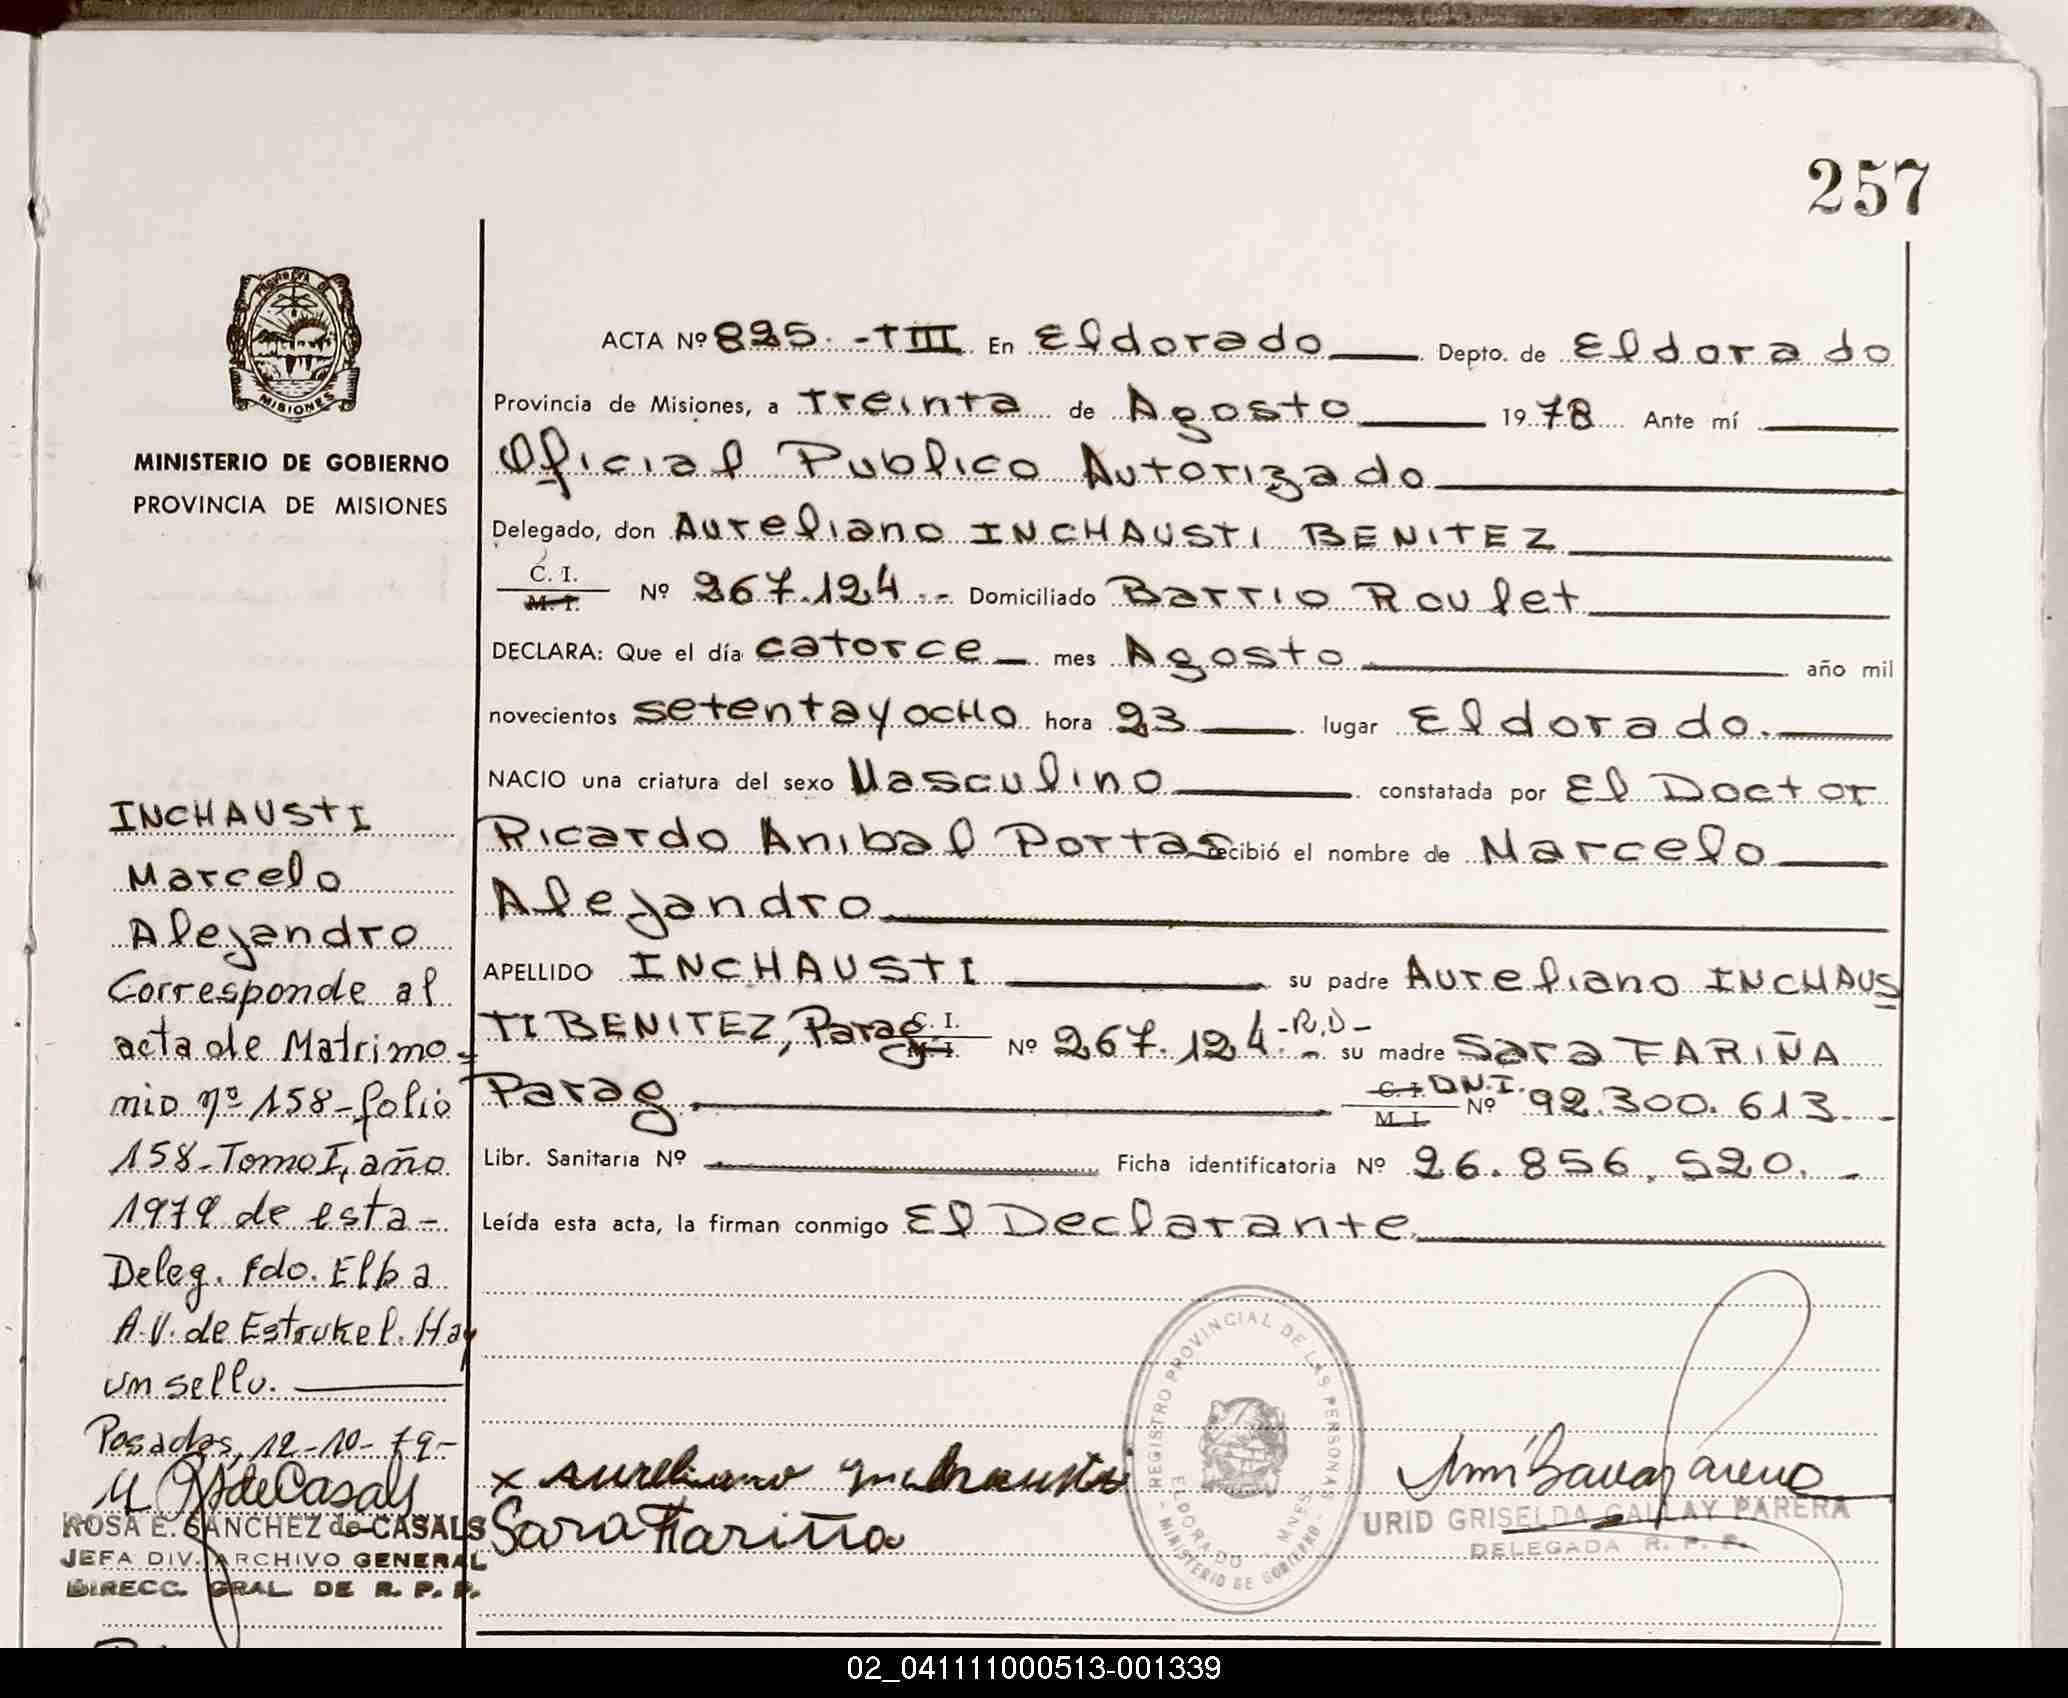 257
PROVINCIA DE
MISIONES
MINISTERIO DE GOBIERNO
PROVINCIA DE MISIONES
ACTA Nº 825.-TIII En Eldorado Depto. de Eldorado
Provincia de Misiones, a treinta de Agosto 1978 Ante mí
Oficial Publico Autorizado
Delegado, don Aureliano INCHAUSTI BENITEZ
C. I.
M. I. Nº 267.124.- Domiciliado Barrio Roulet
DECLARA: Que el día catorce mes Agosto año mil
novecientos setentayocho hora 23 lugar Eldorado.
NACIO una criatura del sexo Masculino constatada por El Doctor
Ricardo Anibal Portas recibió el nombre de Marcelo
Alejandro
APELLIDO INCHAUSTI su padre Aureliano INCHAUS
TI BENITEZ, Parag C. I. M. I. Nº 267.124.-R.D- su madre Sara FARIÑA
Parag C. I. D.N.I. M. I. Nº 92.300.613.-
Libr. Sanitaria Nº Ficha identificatoria Nº 26.856.520.-
Leída esta acta, la firman conmigo El Declarante.
INCHAUSTI
Marcelo
Alejandro
Corresponde al
acta de Matrimo=
nio nº 158-folio
158-Tomo I, año
1979 de esta-
Deleg. fdo. Elba
A.V. de Estrukel. Hay
un sello.
Posadas, 12-10-79-
ROSA E. SANCHEZ de CASALS
JEFA DIV. ARCHIVO GENERAL
DIRECC. GRAL. DE R. P. P.
x Aureliano Inchausti
Sara Fariña
REGISTRO PROVINCIAL DE LAS PERSONAS
ELDORADO MNES.
- MINISTERIO DE GOBIERNO -
URID GRISELDA GALLAY PARERA
DELEGADA R. P. P.
02_041111000513-001339